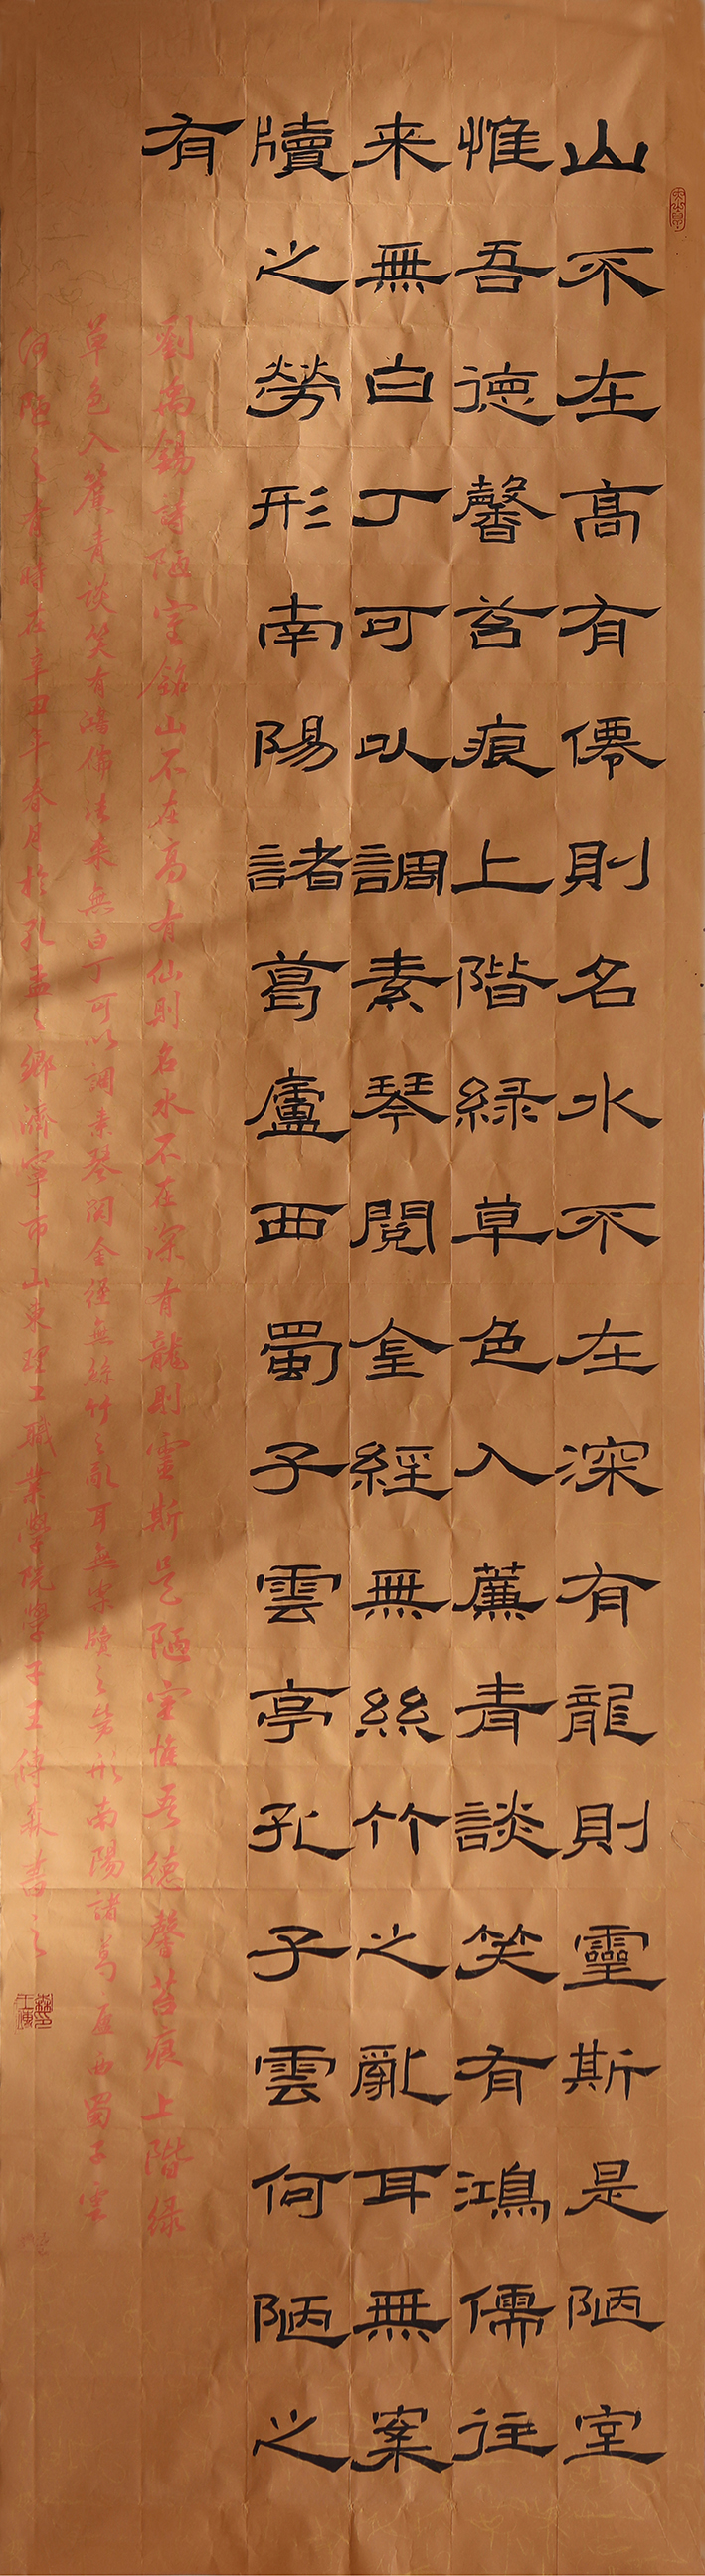 山不在高有僊則名水不在深有龍則靈斯是陋室
惟吾德馨苔痕上階緑草色入薕青談笑有鴻儒往
来無白丁可以調素琴閱金經無絲竹之亂耳無案
牘之勞形南陽諸葛廬西蜀子雲亭孔子雲何陋之
有
劉禹錫詩陋室銘山不在高有仙則名水不在深有龍則靈斯是陋室惟吾德馨苔痕上階緑
草色入簾青談笑有鴻儒往来無白丁可以調素琴閱金經無絲竹之亂耳無案牘之勞形南陽諸葛廬西蜀子雲
何陋之有時在辛丑年春月於孔孟之鄉濟寧市山東理工職業學院學子王傳森書之